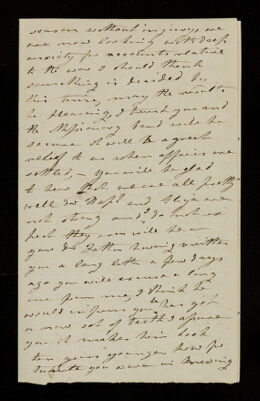 season without injury we
are now looking with deep
anxiety for accounts relative
to the war I should think
something is decided by
this time, may the result
be pleasing I trust you and
the Missionary band will be
secure it will be a great
relief to us when affairs are
settled, — you will be glad
to hear that we are all pretty
well Dr and Eliza are
not strong and I do not ex
pect they ever will be
your Dr Father having written
you a long letter a few days
ago you will excuse a long
one from me, I think he
would inform you he has got
a new set of teeth I assure
you it makes him look
ten years younger how for
tunate you were in